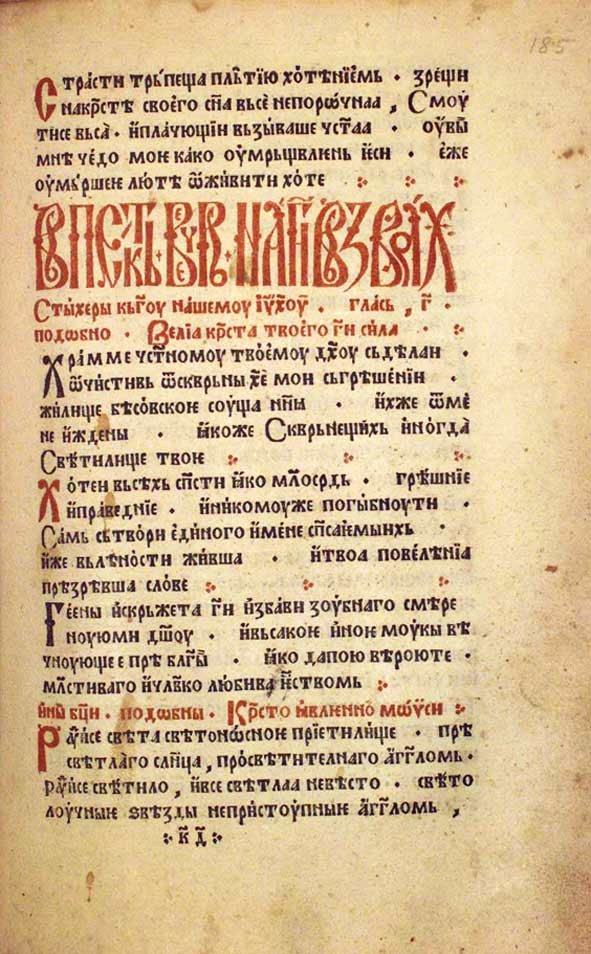 185
Страсти трьпеща пльтїю хотѣнїемь · зрещи
на крⷭтѣ своего сн҃а вьсе непорѡчнаа , Смоу
тисе вьса · и҆плачющїи вьзываше чⷭтаа · оу҆вы̀
мнѣ чедо мое како оу҆мрьщвлень і҆еси · є҆же
оу҆мьршее лютѣ ѡ҆живити хоте
Вь петькь вⷱерь на г҃и вьзвахь
Стⷯыхеры кь г҃оу нашемоу і҆у҃ хоу҃ · глась , г҃ ·
подѡбно · Велїа крⷭта твоего г҃и сила
Храмме чⷭтномоу твоемоу дх҃оу сьдѣлаи ·
ѡ҆чⷭ҇тивь ѿ скврьны х҃е мои сьгрѣшенїи ·
жилище бѣсовское соуща нн҃ы · и҆хже ѿ ме
не и҆ждены · ꙗ҆коже Скврьнещихь и҆ногда
Свѣтилище твое
Хотеи вьсѣхь сп҃сти ꙗ҆ко млⷭ҇срдь · грѣшние
и҆праведние · и҆никомоуже погыбноути ·
Самь сьтвори є҆диного и҆мене сп҃саемыихь ·
и҆же вьлѣности живша · и҆твоа повелѣнїа
прѣзрѣвша слове
Геены и҆скрьжета г҃и и҆збави зоубнаго смѣре
ноую ми дш҃оу · и҆вьсакое и҆ное моукы вѣ
чноующее прѣ блг҃ы · ꙗ҆ко да пою вѣроюте ·
млⷭ҇тиваго и҆чл҃вко любива єⷭ҇ствомь
и҆ны бц҃и · подѡбны · Крⷭто ꙗ҆вленно мѡѵ̈си
Раⷣисе свѣта свѣтонѡсное прїетилище · прѣ
свѣтлаго сл҃нца , просвѣтителнаго а҆гг҃ломь ·
раⷣисе свѣтило , и҆все свѣтлаа невѣсто · свѣто
лоучные ѕвѣзды непристоупные а҆гг҃ломь ,
к҃д